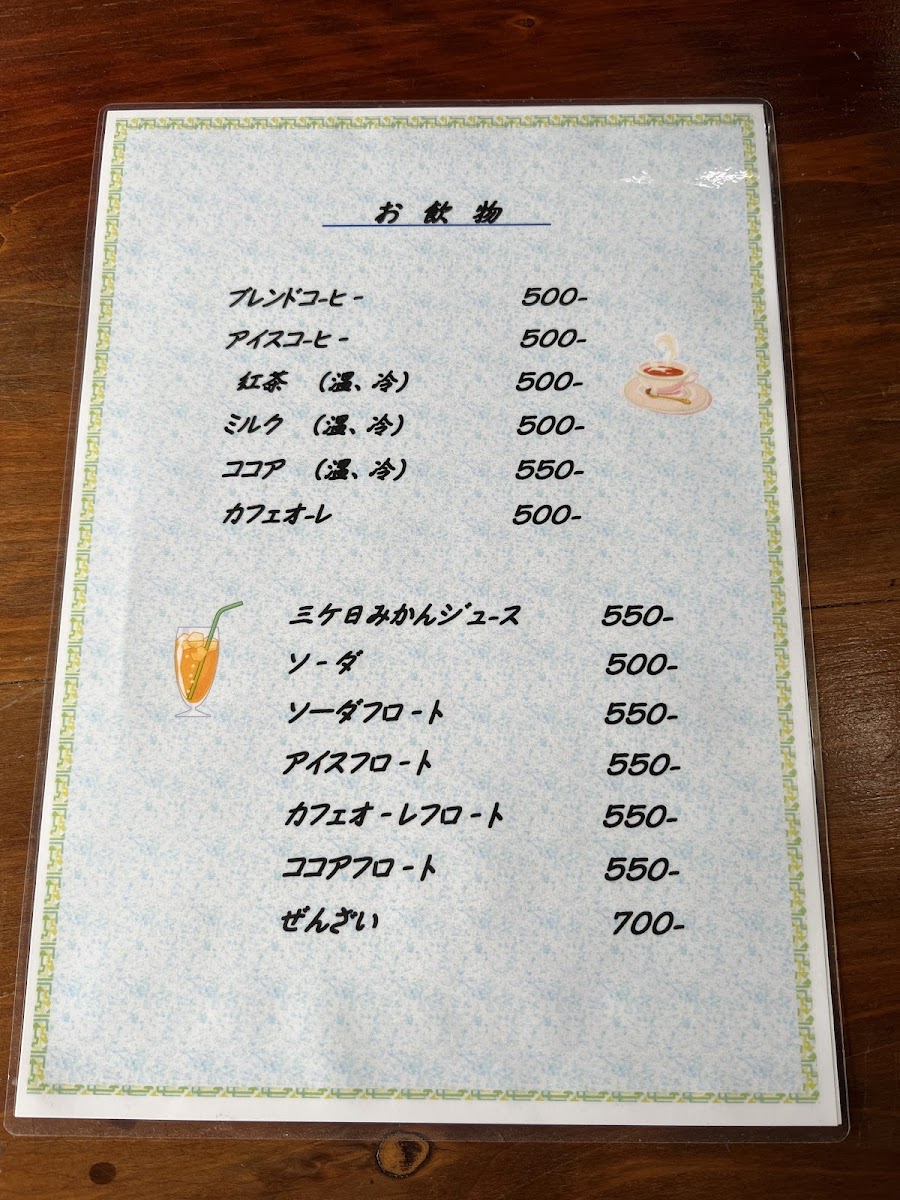 お飲物
ブレンドコーヒー 500-
アイスコーヒー 500-
紅茶 (温、冷) 500-
ミルク (温、冷) 500-
ココア (温、冷) 550-
カフェオーレ 500-
三ケ日みかんジュース 550-
ソーダ 500-
ソーダフロート 550-
アイスフロート 550-
カフェオーレフロート 550-
ココアフロート 550-
ぜんざい 700-